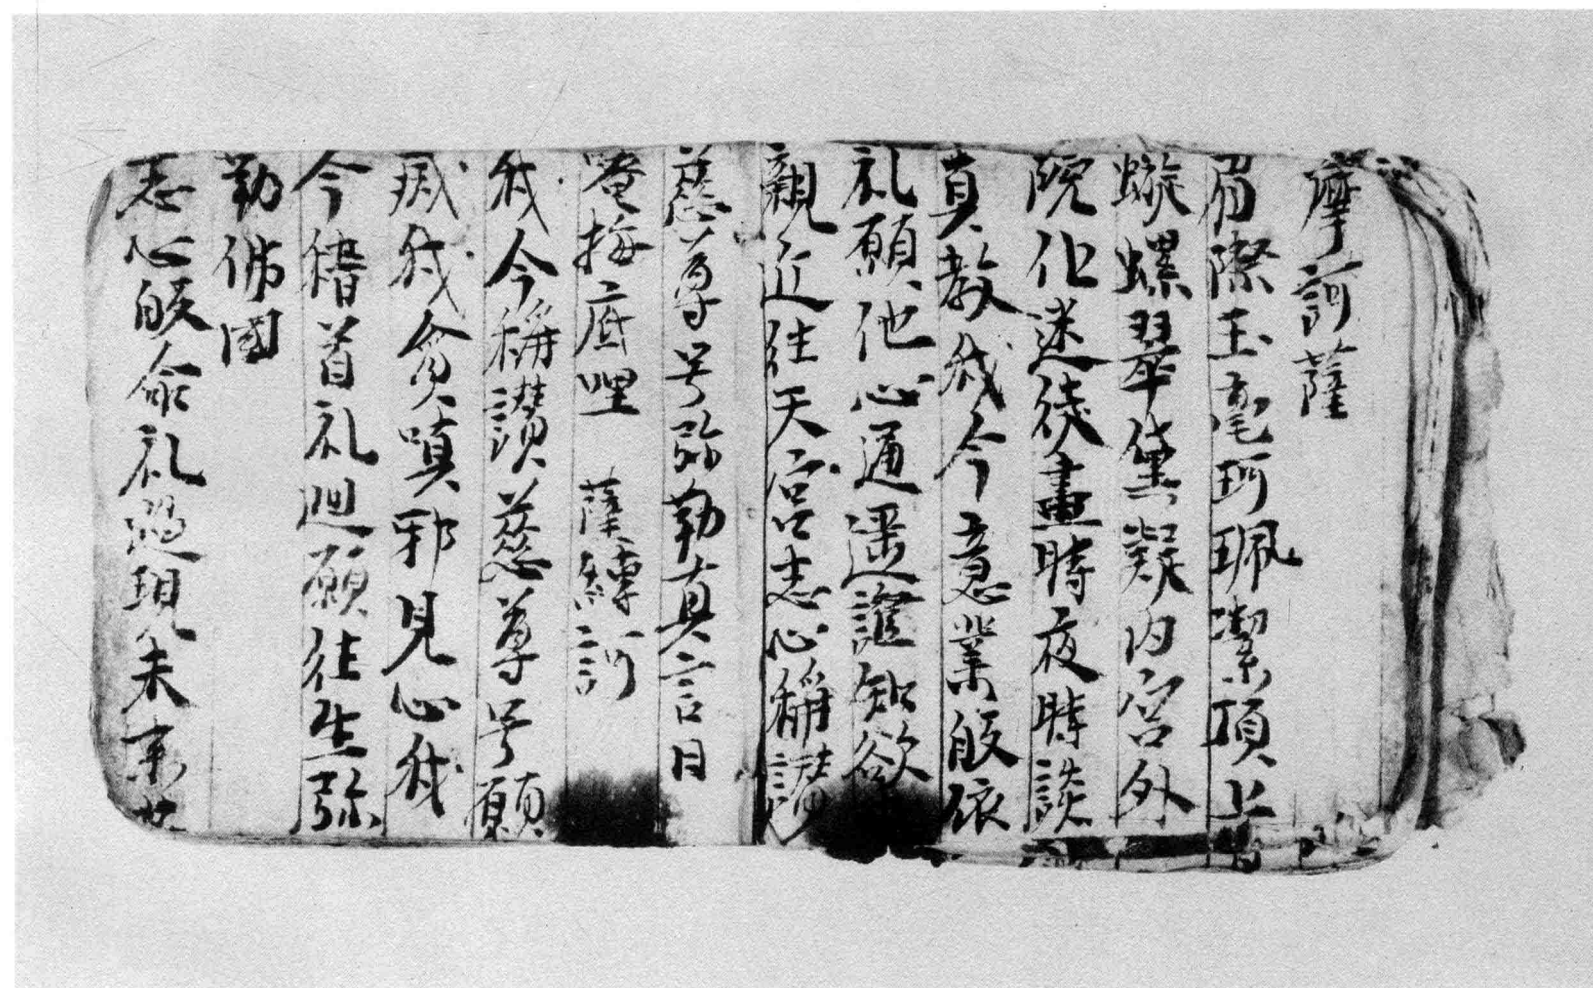 摩訶薩
眉際玉毫珂珮潔頂上
螺翠黛凝内宮外
院化迷徒晝時夜時談
真教我今意業皈依
礼願他心通遥證知欲
親近往天宮志心稱讃
慈尊号弥勒真言曰
唵梅底哩 薩縛訶
我今稱讃慈尊号願
滅我貪嗔邪見心我
今稽首礼迴願往生弥
勒佛國
志心皈命礼過現未來